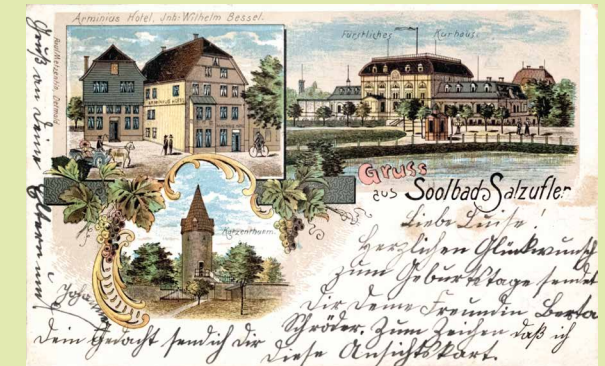 Arminius Hotel, Inh: Wilhelm Bessel.
Fürstliches Kurhaus.
ARMINIUS HOTEL
Katzenthurm.
Gruss
aus Soolbad Salzuflen
Liebe Luise!
Herzlichen Glückwunsch
zum Geburtstage sendet
Dir Deine Freundin Berta
Schröder. Zum Zeichen daß ich
Dein Gedacht sendich Dir
diese Ansichtskart.
Gruß an Deine Eltern und